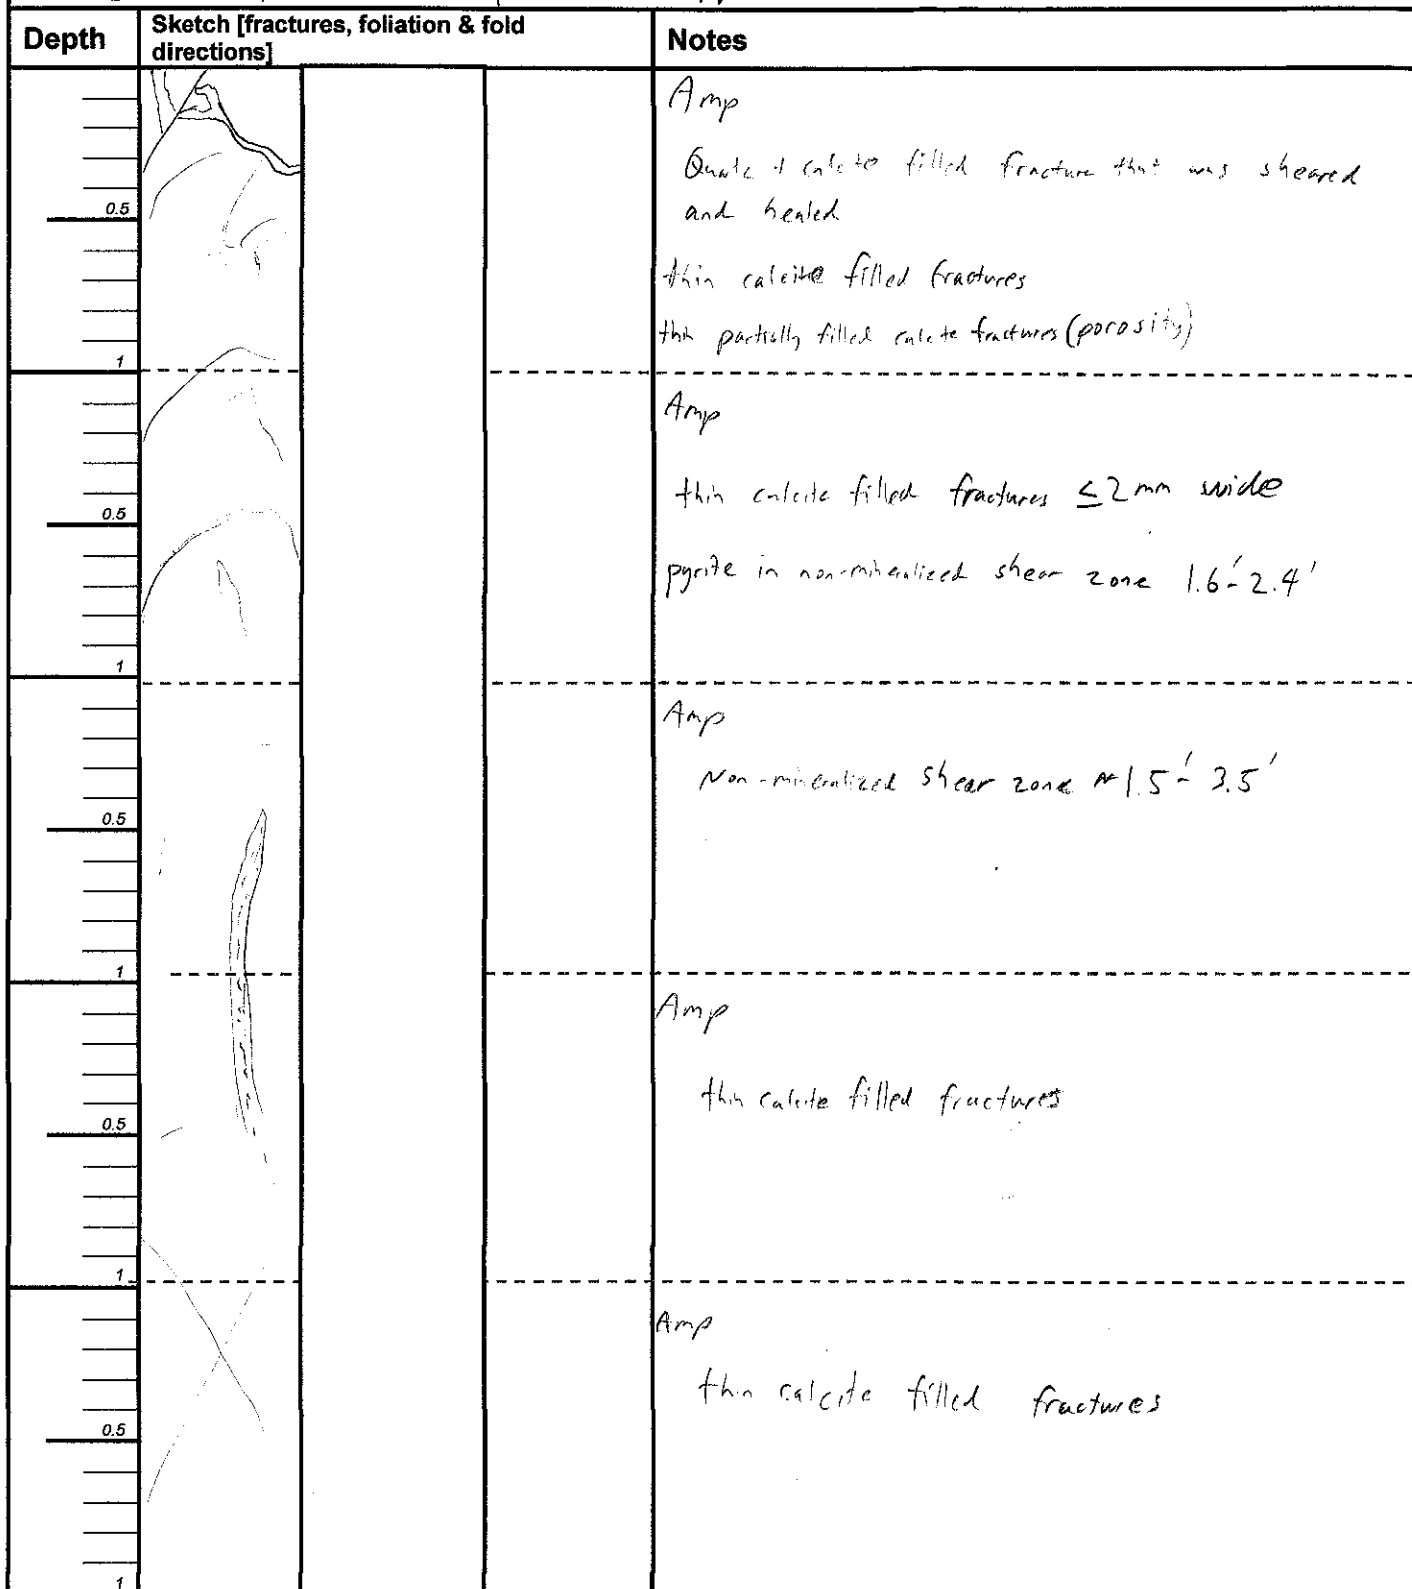 Depth
Sketch [fractures, foliation & fold
directions]
Notes
Amp
Quartz + calcite filled fracture that was sheared
and healed
0.5
thin calcite filled fractures
thin partially filled calcite fractures (porosity)
1
Amp
thin calcite filled fractures ≤2mm wide
0.5
pyrite in non-mineralized shear zone 1.6'-2.4'
1
Amp
Non-mineralized shear zone ~1.5'-3.5'
0.5
1
Amp
thin calcite filled fractures
0.5
1
Amp
thin calcite filled fractures
0.5
1